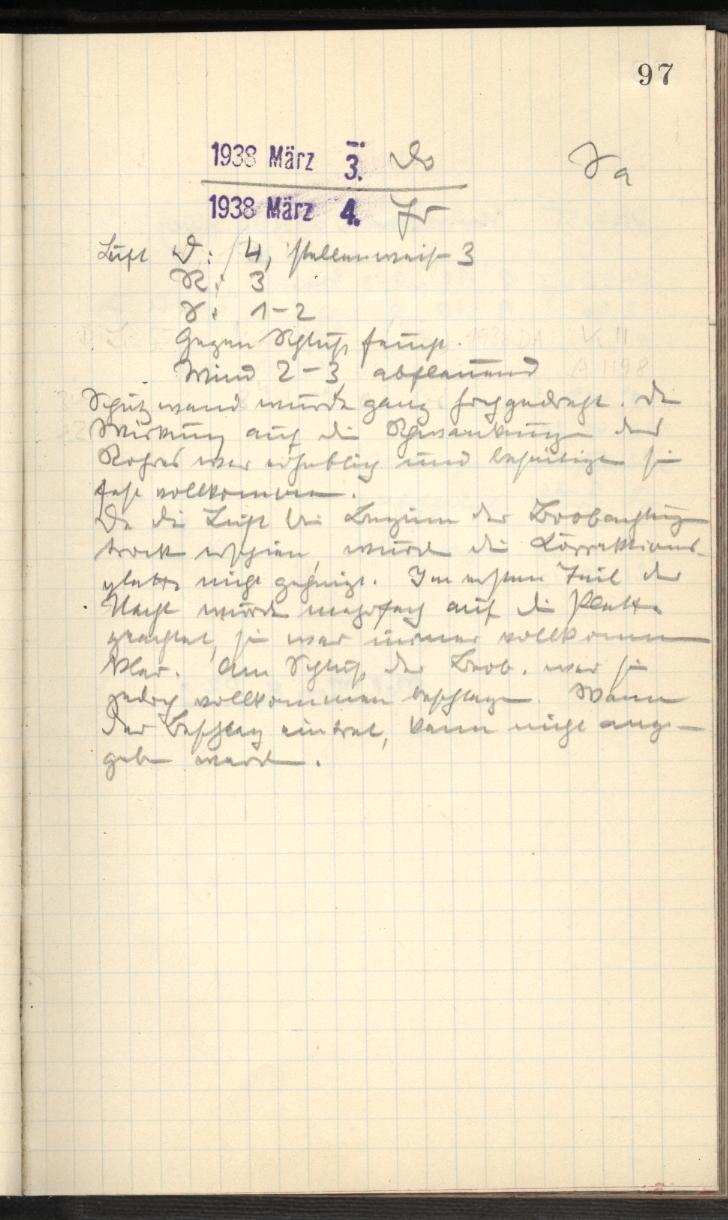 97
1938 März 3. Do
1938 März 4. Fr
Luft D: 4, stellenweise 3
R: 3
S: 1-2
Gegen Schluß feucht.
Wind 2-3, abflauend
Schutzwand wurde ganz hochgedreht. Die
Wirkung auf die Schwankungen des
Rohres war erheblich und beseitigte sie
fast vollkommen.
Da die Luft bei Beginn der Beobachtung
trocken erschien, wurde die Korrektions-
platte nicht geheizt. Im ersten Teil der
Nacht wurde mehrfach auf die Platte
geachtet, sie war immer vollkommen
klar. Am Schluß der Beob. war sie
jedoch vollkommen beschlagen. Wann
der Beschlag eintrat, kann nicht ange-
geben werden.